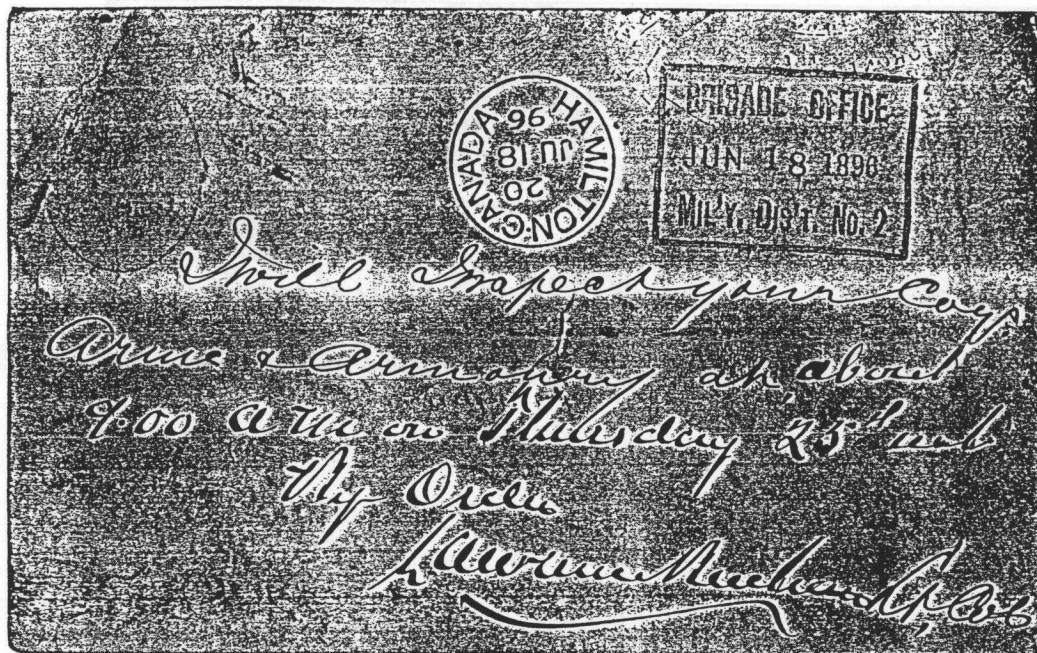 HAMILTON·CANADA
20
JU 18
96
BRIGADE OFFICE
JUN 18 1896
MIL'Y. DIS'T. No. 2
I will Inspect your Coys
Arms & Armoury at about
9.00 a m on Thursday 25th
By Order
Lawrence